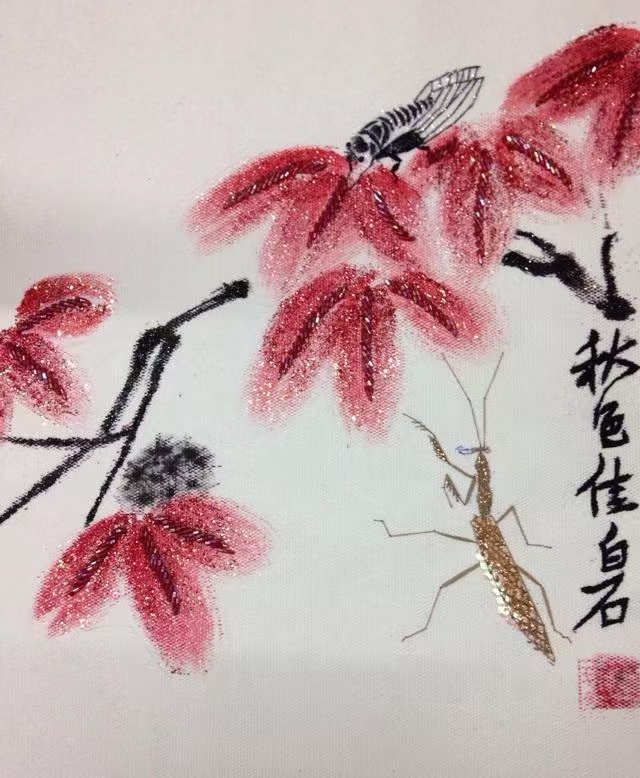 秋色佳白石